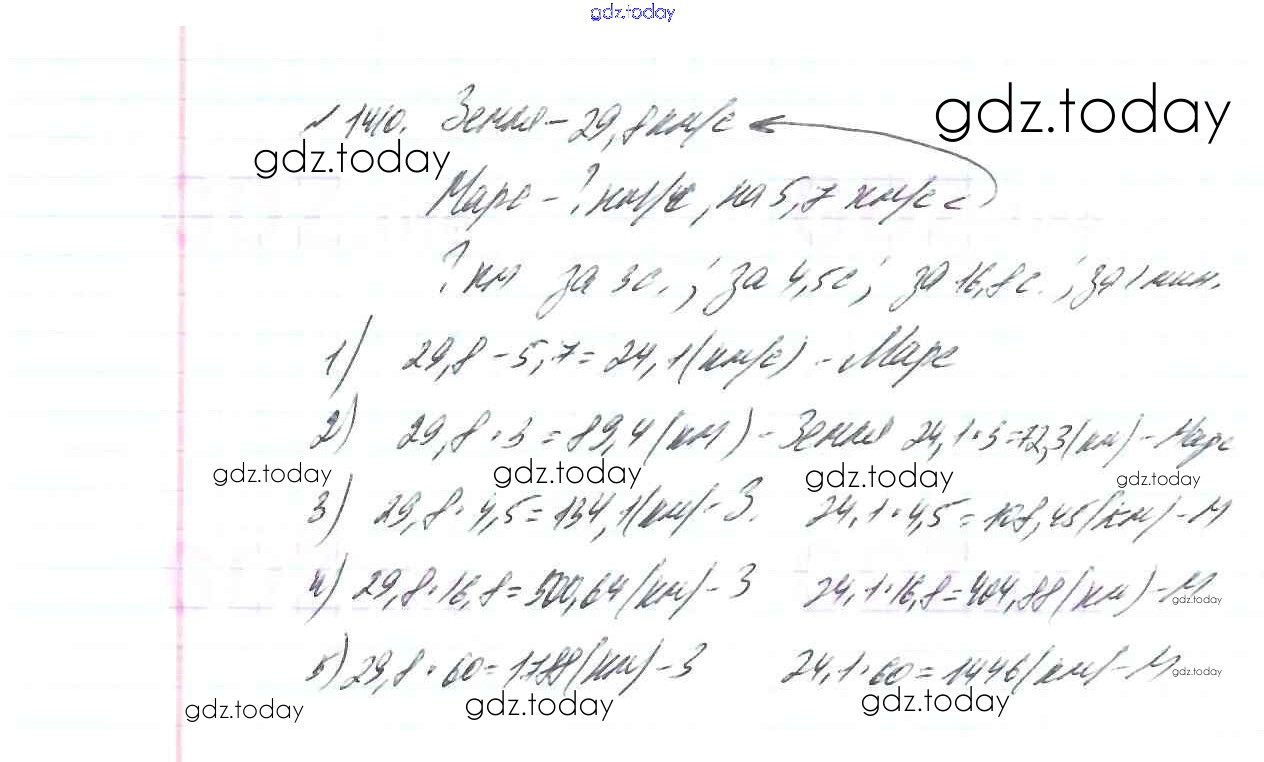 gdz.today
№ 1410. Земля – 29,8 км/с gdz.today
gdz.today
Марс – ? км/с, на 5,7 км/с <
? км за 3 с.; за 4,5 с; за 16,8 с.; за 1 мин.
1) 29,8 – 5,7 = 24,1 (км/с) – Марс
2) 29,8 · 3 = 89,4 (км) – Земля 24,1 · 3 = 72,3 (км) – Марс
gdz.today gdz.today gdz.today gdz.today
3) 29,8 · 4,5 = 134,1 (км) – З. 24,1 · 4,5 = 108,45 (км) – М
4) 29,8 · 16,8 = 500,64 (км) – З 24,1 · 16,8 = 404,88 (км) – М
gdz.today
5) 29,8 · 60 = 1788 (км) – З 24,1 · 60 = 1446 (км) – М
gdz.today
gdz.today gdz.today gdz.today